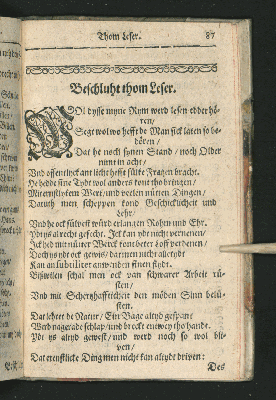 Thom Leser. 87
Beschluht thom Leser.
WOl dysse myne Rym werd lesen edder hö-
ren/
Segt wol wo hefft de Man sick laten so be-
dören/
Dat he noch synen Stand / noch Older
nimt in acht/
Und offentlick ant licht hefft sülke Fragen bracht.
He hedde sine Tydt wol anders kont tho bringen/
Mit ernstlykem Werk/ und velen nütten Dingen/
Daruth men scheppen kond Geschicklicheit und
Lehr/
Und he ock sülvest würd erlangen Rohm und Ehr.
Idt ys also recht gesecht. Ick kan ydt nicht vernenen/
Ick hed mit nütter Werck kont beter Loff verdenen/
Doch ys ydt ock gewis/ dat men nicht altydt
Kan an subtiliteit anwenden sinen flydt.
Bißwilen schal men ock van schwarer Arbeit rü-
sten/
Und mit Scherzhafftichen den möden Sinn belü-
sten.
Dat lehret de Natur/ Ein Bage altyd gespant
Werd nagerade schlap/ und breckt entwey tho hande.
Idt ys altyd gewest/ und werd noch so wol bli-
ven/
Dat ernstlicke Ding men nicht kan altydt driven:
Des